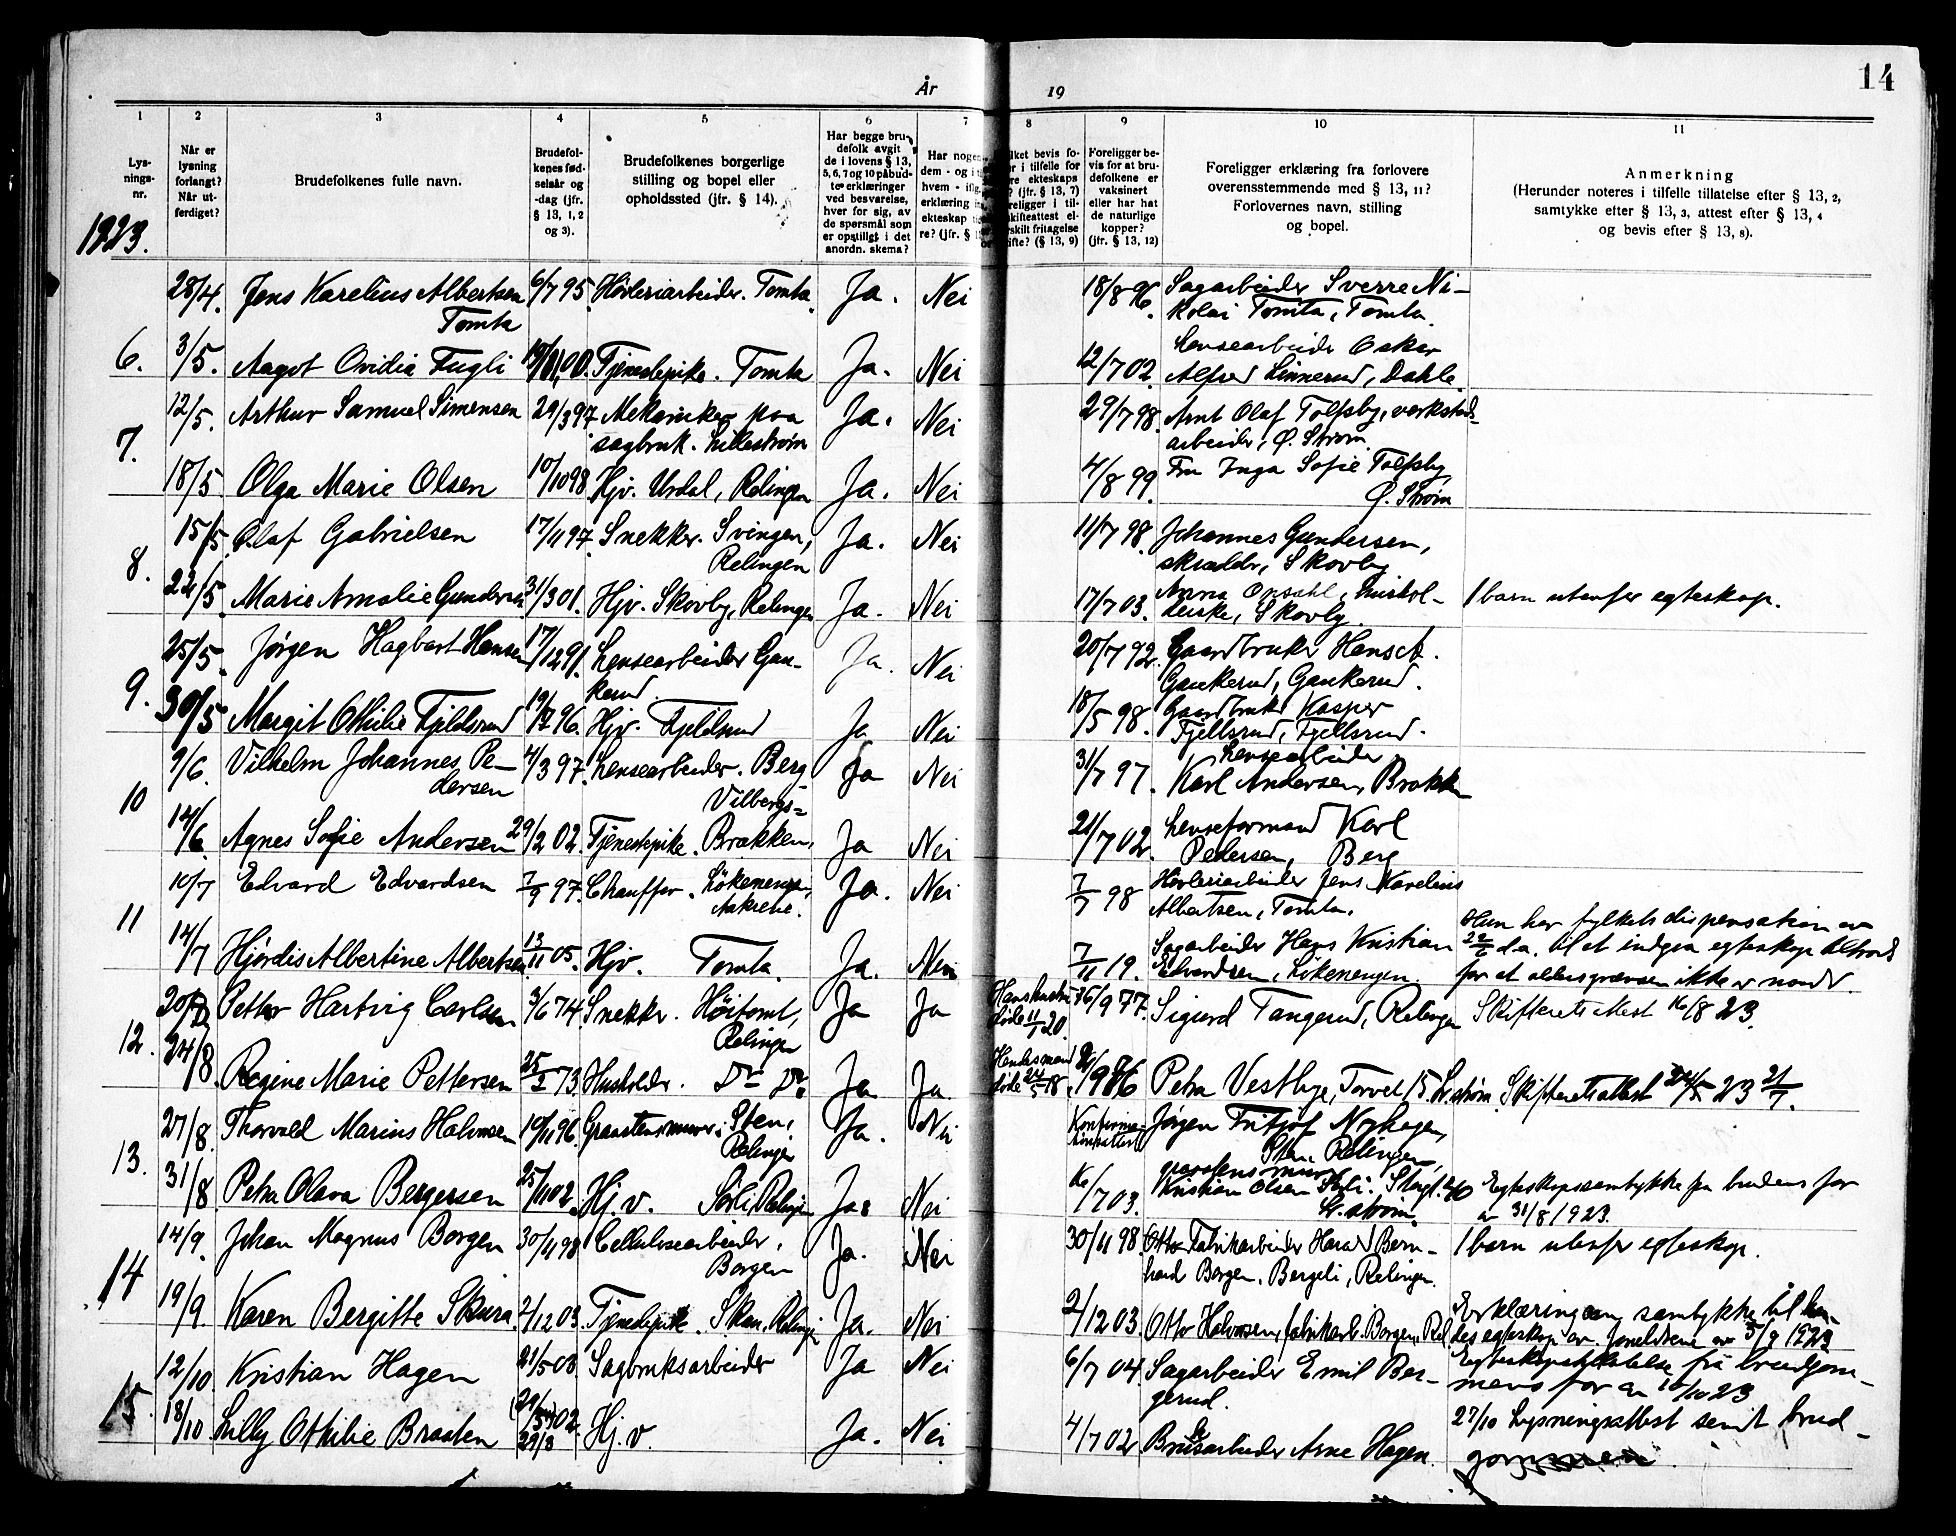 År 19 14
1 2 3 4 5 6 7 8 9 10 11
Lys-
nings-
nr.
Når er
lysning
forlangt?
Når ut-
ferdiget?
Brudefolkenes fulle navn.
Brudefol-
kenes fød-
selsår og
-dag (jfr.
§ 13, 1, 2
og 3).
Brudefolkenes borgerlige
stilling og bopel eller
opholdssted (jfr. § 14).
Har begge bru-
defolk avgit
de i lovens § 13,
5, 6, 7 og 10 påbud-
te erklæringer
ved besvarelse,
hver for sig, av
de spørsmål som
er opstillet i det
anordn. skema?
Har nogen
dem - og i
hvem - ifig.
erklæring
ekteskap
re? (jfr. §
lket bevis fo-
r i tilfelle for
re ekteskaps
? (jfr. § 13, 7)
religger i til-
skifteattest el-
skilt fritagelse
ifte? (§ 13, 9)
Foreligger be-
vis for at bru-
defolkene er
vaksinert
eller har hat
de naturlige
kopper?
(jfr. § 13, 12)
Foreligger erklæring fra forlovere
overensstemmende med § 13, 11?
Forlovernes navn, stilling
og bopel.
Anmerkning
(Herunder noteres i tilfelle tillatelse efter § 13, 2,
samtykke efter § 13, 3, attest efter § 13, 4
og bevis efter § 13, 8).
1923.
28/4. Jens Karelius Albertsen 6/7 95. Høvleriarbeider. Tomta. Ja. Nei 18/8 96. Sagarbeider Sverre Ni-
Tomta kolai Tomta, Tomta.
6. 3/5. Aagot Ovidia Fugli 00. Tjenestepike. Tomta Ja. Nei 12/7 02. Lensearbeider Oskar
Alfred Linnerud, Dahle.
7. 12/5. Arthur Samuel Simensen 29/3 97. Mekaniker paa Ja. Nei 29/7 98. Arnt Olaf Tolfsby, verksteds-
sagbruk. Lillestrøm arbeider, Ø. Strøm.
18/5 Olga Marie Olsen 10/10 98. Hjv. Urdal, Relingen Ja. Nei 4/8 99. Fru Inga Sofie Tolfsby,
Ø. Strøm
8. 15/5. Olaf Gabrielsen 17/11 97. Snekker. Svingen, Ja. Nei 11/7 98. Johannes Gundersen,
Relingen skrædder, Skovby
22/5. Marie Amalie Gundersen 31/3 01. Hjv. Skovby, Relingen Ja. Nei 17/7 03. Anna Opsahl, hushol-
derske, Skovby. 1 barn utenfor egteskap.
9. 25/5. Jørgen Hagbart Hansen 17/12 91. Lensearbeider Gau- Ja. Nei 20/7 92. Gaardbruker Hans A.
kerud. Gaukerud, Gaukerud.
30/5 Margit Othilie Fjeldsrud 96. Hjv. Fjeldsrud Ja Nei 18/5 98. Gaardbruker Kasper
Fjellsrud, Fjellsrud.
10 9/6. Vilhelm Johannes Pe- 4/3 97. Lensearbeider. Berg Ja Nei 31/7 97. Lensearbeider
dersen Karl Andersen, Brakken
14/6. Agnes Sofie Andersen 29/2 02. Tjenestepike. Vilbergs=
Brakken, Ja Nei 21/7 02. Lenseformand Karl
Pedersen, Berg
11 10/7 Edvard Edvardsen 7/9 97. Chauffør. Løkenengen, Ja. Nei 7/7 98 Høvleriarbeider Jens Karelius
Albertsen, Tomta.
14/7 Hjørdis Albertine Albertsen 13/11 05. Hjv. Tomta. Ja. Nei 7/11 19. Sagarbeider Hans Kristian
Edvardsen, Løkenengen.
Hun har fylkets dispensation av
d.a. til at indgaa egteskap tiltrods
for at aldersgrænsen ikke er naadd.
12. Petter Hartvig Carlsen 3/6 74 Snekker. Høitomt, Ja Ja Hans hustru
Relingen døde 11/7 20. 9 77. Sigurd Tangerud, Relingen Skifteretsattest 16/8 23.
24/8. Regine Marie Pettersen 25/2 73. Husholder. Do Do Ja Ja. Hendes mand
døde 18. Petra Vestbye, Torvet 15. L.strøm. Skifteretsattest 23
13. 27/8. Thorvald Marius Halvorsen 19/11 96. Graastensmurer, Sten, Ja. Nei Konfirma-
Relingen Jørgen Fritjof Nyhagen,
Sten, Relingen,
graastensmurer
31/8. Petra Olava Bergersen 25/11 02. Hj. v. Sørli, Relingen Ja. Nei /7 03. Kristian Olsen
L. strøm. Egteskapssamtykke fra brudens far
av 31/8 1923.
14 14/9. Johan Magnus Borgen 30/11 98. Cellulosearbeider, Ja. Nei 30/11 98. Fabrikarbeider Harald Bern-
Borgen hard Borgen. Bergeli, Relingen. 1 barn utenfor egteskap.
19/9. Karen Bergitte Skara. 2/12 03. Tjenestepike. Relingen Ja. Nei 2/12 03. Otto Halvorsen, fabrikarb. Borgen, Rel.
Erklæring om samtykke til hen-
des egteskap av forældrene av 5/9 1923
15. 12/10. Kristian Hagen 21/5 03. Sagbruksarbeider Ja Nei 6/7 04. Sagarbeider Emil Ber-
gerud. Egteskapstillatelse fra brudgom-
mens far av 10/10 23
18/10 Lilly Othilie Braaten 02. Hj. v. Ja. Nei 4/7 02. Brusarbeider Arne Hagen.
29/8
27/10 Lysningsattest sendt brud-
gommen.